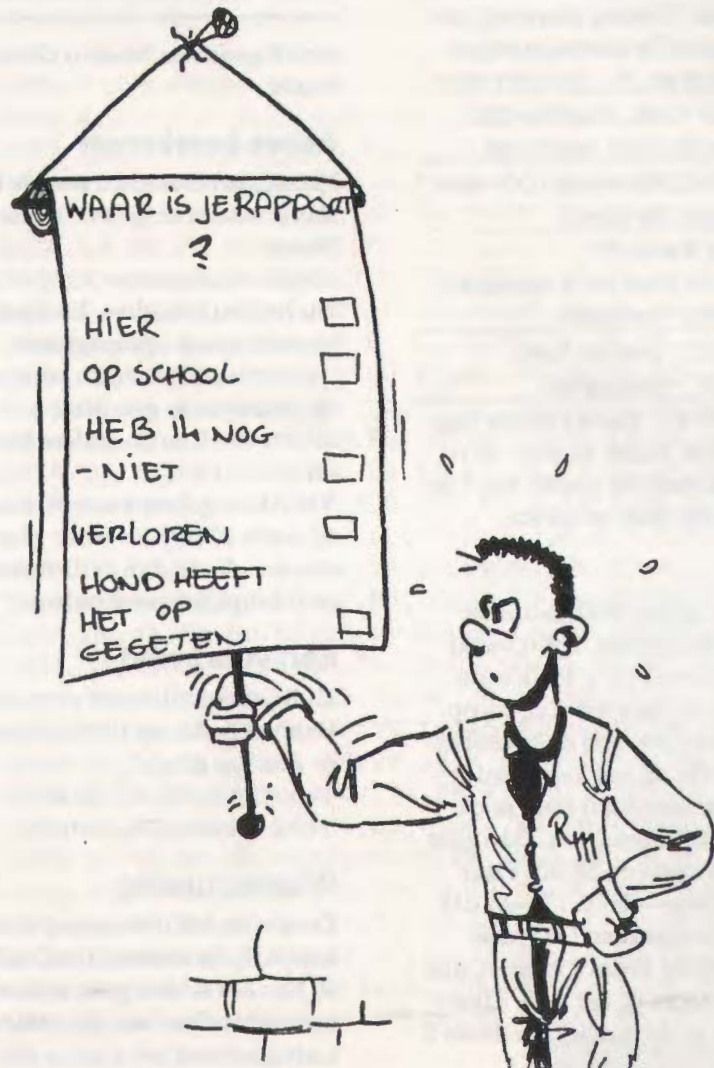 WAAR IS JE RAPPORT
?
HIER
OP SCHOOL
HEB IK NOG
- NIET
VERLOREN
HOND HEEFT
HET OP
GEGETEN
Rm